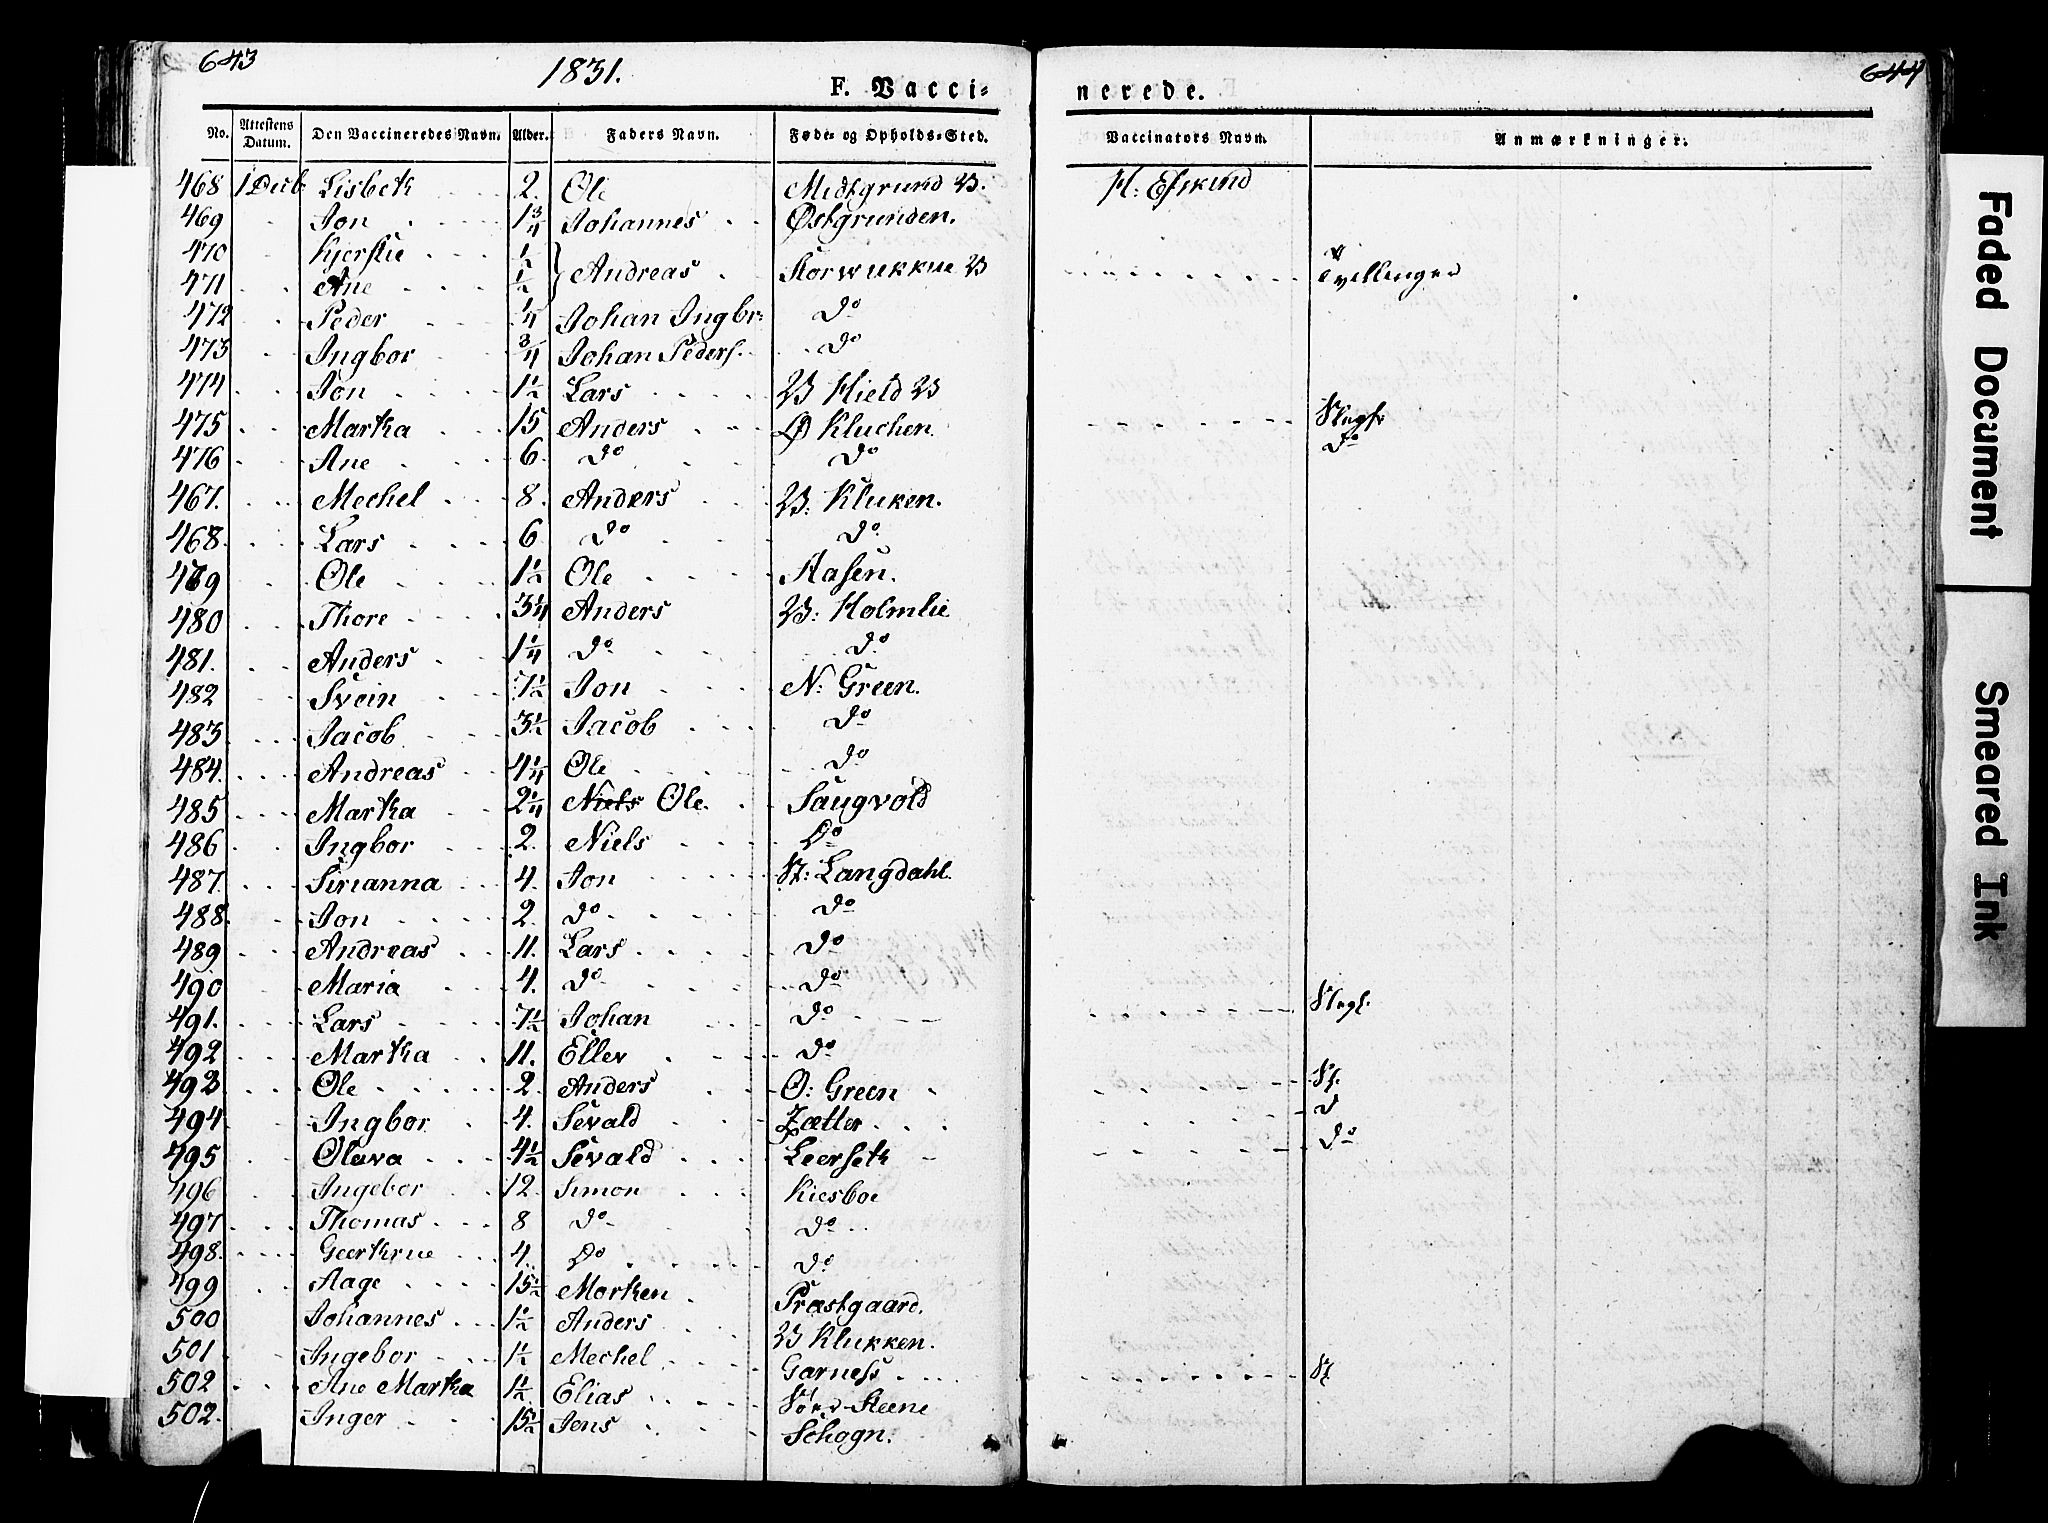 643
1831.
F. Vacci-
nerede.
644
No. Attestens Datum. Den Vaccineredes Navn. Alder. Faders Navn. Føde- og Opholds-Sted. Vaccinators Navn. Anmærkninger.
468 1 Decb Lisbeth 2. Ole Midtgrund V. H: Eskind
469 Jon 1 3/4 Johannes Østgrunden.
470 Kjerstie 1/2
471 Ane 1/2 } Andreas Storwukkue V Tvillinger
472 Peder 1/4 Johan Ingbr: Do
473 Ingbor 3/4 Johan Peders. Do
474 Jon 1 1/2 Lars V Hield V
475 Martha 15 Anders Ø Kluchen. Slegf:
476 Ane 6 Do Do Do
467. Mechel 8. Anders V: Kluken.
468. Lars 6 Do Do
469 Ole 1 1/2 Ole Aasen.
480 Thore 3 1/4 Anders V: Holmlie
481. Anders 1 1/4 Do Do
482 Svein 7 1/2 Jon N: Green.
483. Jacob 3 1/2 Jacob Do
484. Andreas 4 1/4 Ole Do
485 Martha 2 1/4 Niels Ole. Saugvold
486 Ingbor 2. Niels Do
487. Sirianna 4. Jon St: Langdahl.
488. Jon 2. Do Do
489 Andreas 11. Lars Do
490 Maria 4. Do Do
491. Lars 7 1/2 Johan Do Slegf.
492 Martha 11. Ellev Do
493 Ole 2 Anders O: Green Sl.
494 Ingbor 4. Sevald Zætter D
495 Olava 4 1/2 Sevald Leerseth Do
496 Ingebor 12. Simon Kiesboe
497 Thomas 8 Do Do
498. Geertrue 4. Do Do
499 Aage 15 1/2 Morten Præstgaard.
500 Johannes 1 1/2 Anders V Klukken.
501 Ingebor 1 1/2 Mechel Garness Sl
502 Ane Martha 1 1/2 Elias Nord-Steene
502. Inger 15 1/2 Jens Schogn.
Faded Document
Smeared Ink